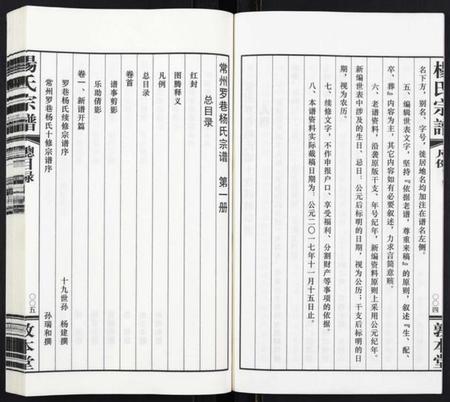 杨氏宗谱
凡例
〇〇四
敦本堂
名下方，别名、字号，徙居地名均加注在谱名左侧。
五、编辑世表文字，坚持『依据老谱，尊重来稿』的原则，叙述『生、配、
卒、葬』内容为主，其它内容如有必要叙述，力求言简意赅。
六、老谱资料，沿袭原版干支、年号纪年，新编资料原则上采用公元纪年。
新编世表中涉及的生日、忌日：公元后标明的日期，视为公历；干支后标明的日
期，视为农历。
七、续修文字，不作申报户口、享受福利、分割财产等事项的依据。
八、本谱资料实际截稿日期为：公元二〇一七年十一月十五日止。
常州罗巷杨氏宗谱 第一册
总目录
红封
图腾释义
凡例
总目录
卷首
谱事剪影
乐助倩影
卷一、新谱开篇
罗巷杨氏续修宗谱序 十九世孙 杨建撰
常州罗巷杨氏十修宗谱序 孙瑞和撰
楊氏宗譜
總目録
〇〇五
敦本堂